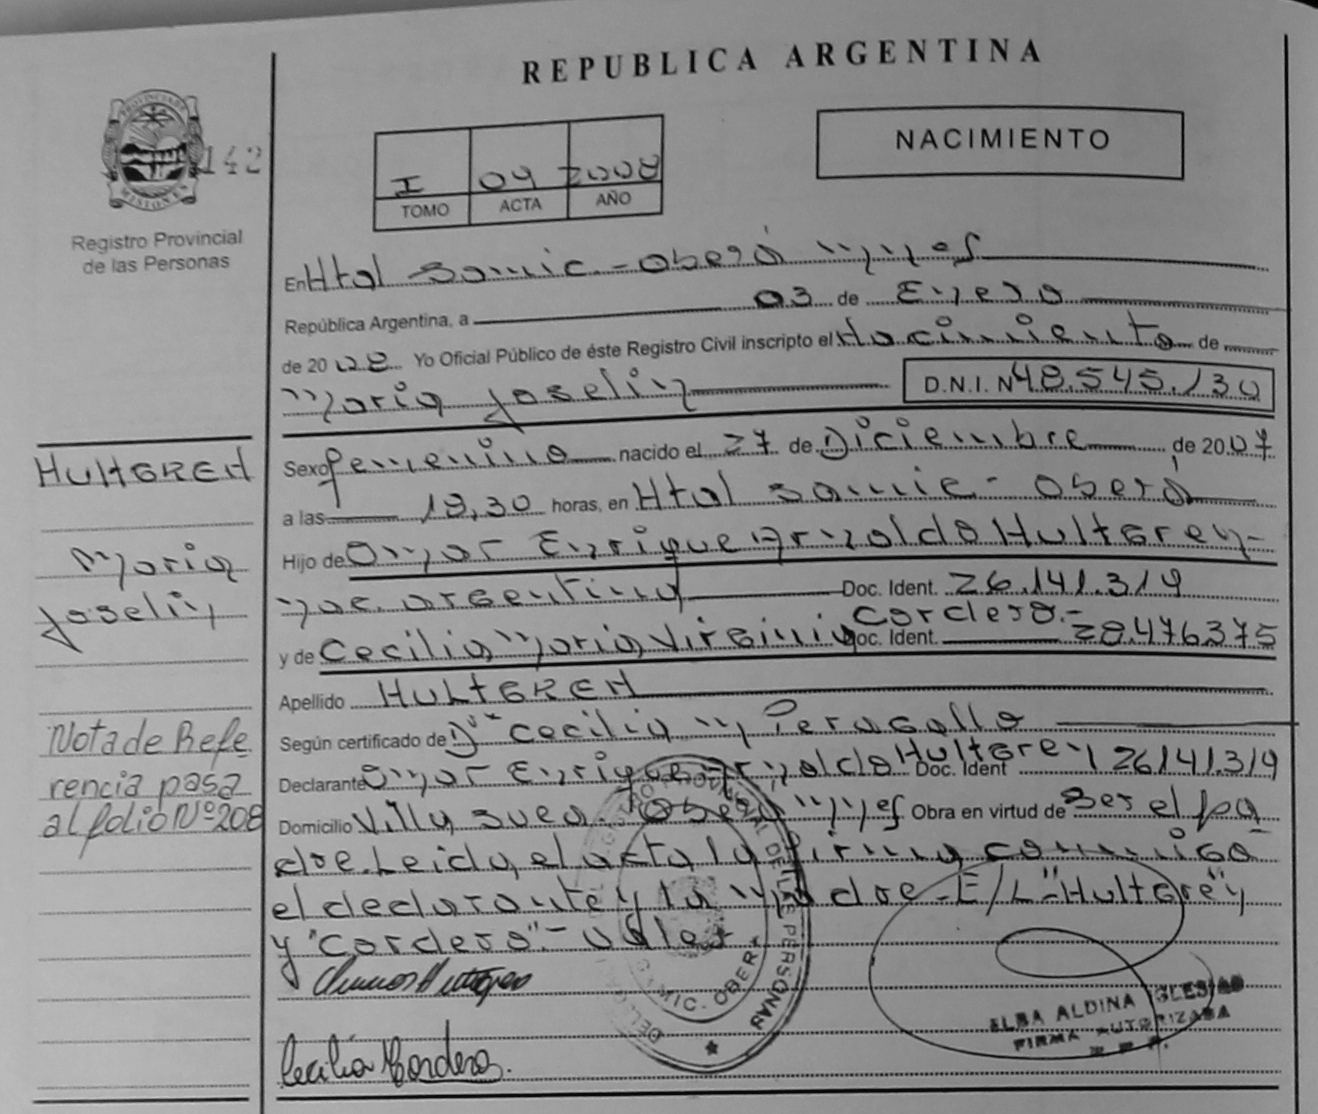 REPUBLICA ARGENTINA
PROVINCIA DE
MISIONES
142
Registro Provincial
de las Personas
I 04 2008
TOMO ACTA AÑO
NACIMIENTO
En Htal Samic - Oberá Mnes
República Argentina, a 03 de Enero
de 2008 Yo Oficial Público de éste Registro Civil inscripto el Nacimiento de
Maria Joselin D.N.I. Nº 48.545.130
Sexo femenino nacido el 27 de Diciembre de 2007
a las 18,30 horas, en Htal Samic - Oberá
Hijo de Omar Enrique Arnoldo Hultgren-
nac. argentina Doc. Ident. 26.141.319
y de Cecilia Maria Virginia Cordero.- Doc. Ident. 28.476375
Apellido HULTGREN
Según certificado de Dra Cecilia M Peragallo
Declarante Omar Enrique Arnoldo Hultgren Doc. Ident 26141.319
Domicilio Villa Suea. Oberá Mnes Obra en virtud de Ser el pa
dre. Leida el acta la firma conmigo
el declarante y la madre - E/L "Hultgren"
y "Cordero" - Vale
HULTGREN
Maria
Joselin
Nota de Refe
rencia pasa
al folio Nº 208
Cecilia Cordero.
REGISTRO PROVINCIAL DE LAS PERSONAS
SAMIC. OBERA
ELBA ALDINA IGLESIAS
FIRMA AUTORIZADA